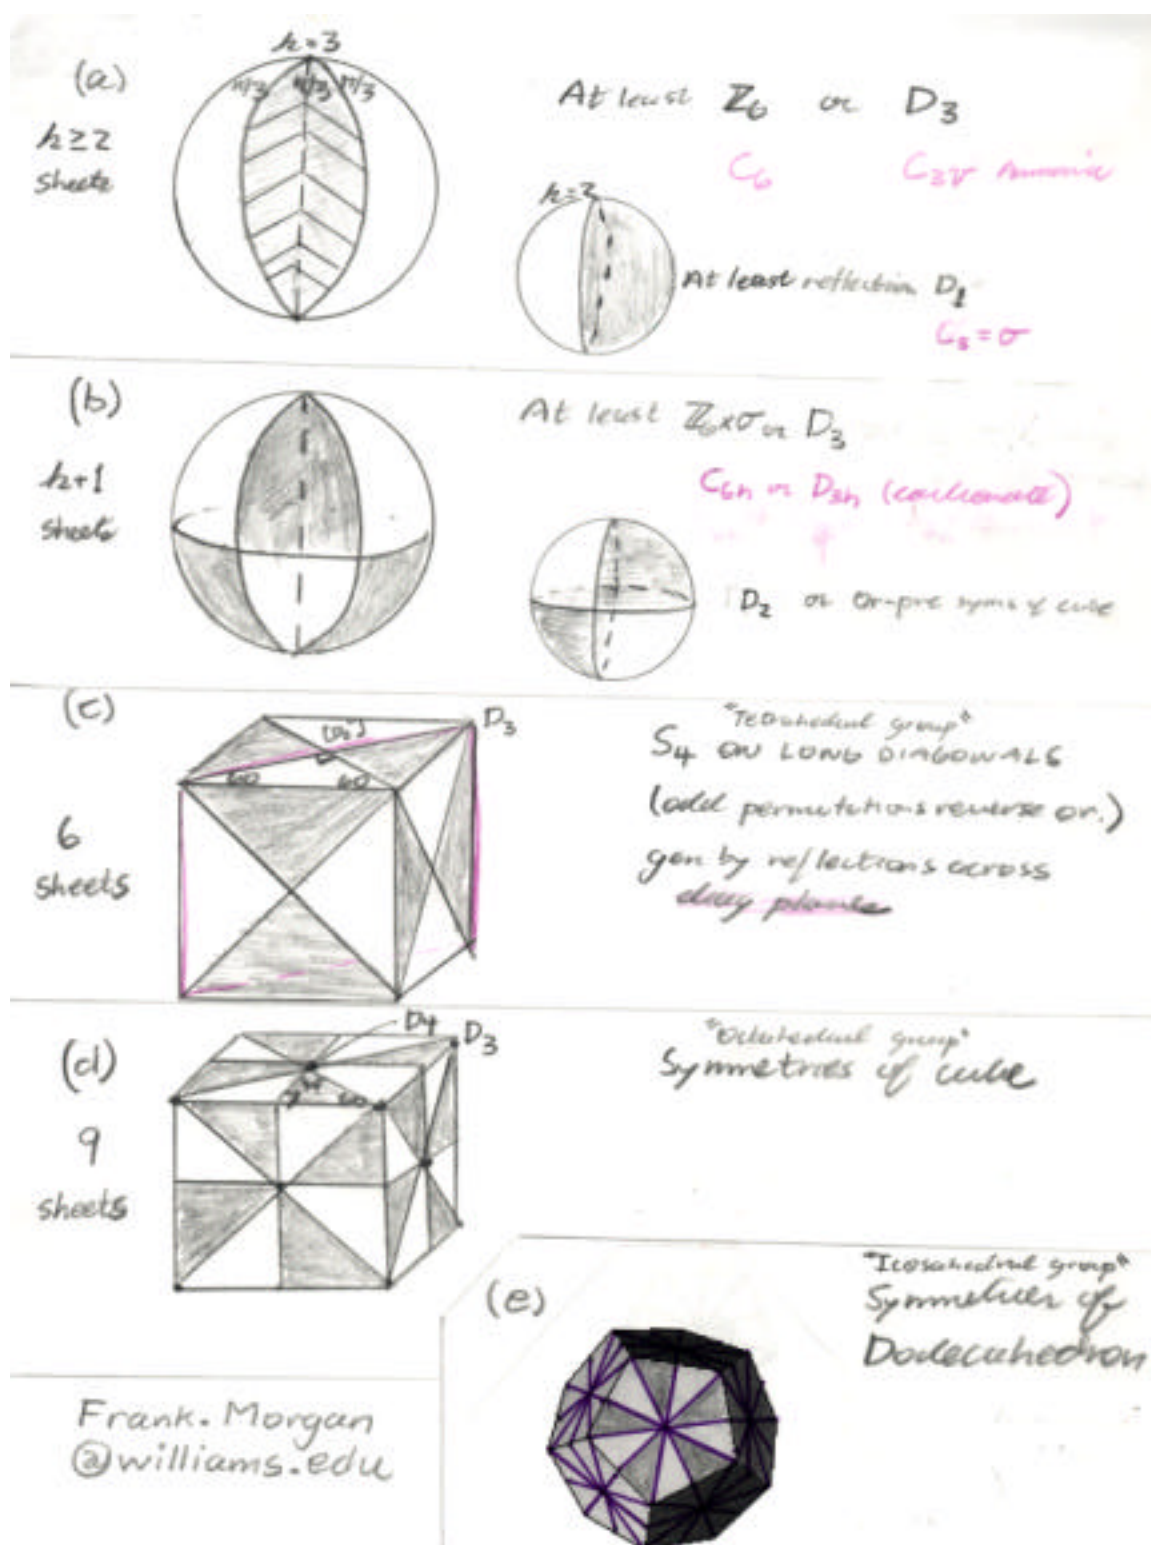 k=3
(a)
π/3 π/3 π/3
k≥2
sheets
At least ℤ₆ or D₃
C₆
k=2
At least reflection D₁
Cₛ=σ
(b)
k+1
sheets
At least ℤ₆×σ or D₃
C₆ₕ or D₃ₕ (carbonate)
D₂ or or-pre syms of cube
(c)
D₃
60 60
6
sheets
"Tetrahedral group"
S₄ ON LONG DIAGONALS
(odd permutations reverse or.)
gen by reflections across
diag planes
(d)
D4
D₃
60
9
sheets
"Octahedral group"
Symmetries of cube
(e)
"Icosahedral group"
Symmetries of
Dodecahedron
Frank.Morgan
@williams.edu